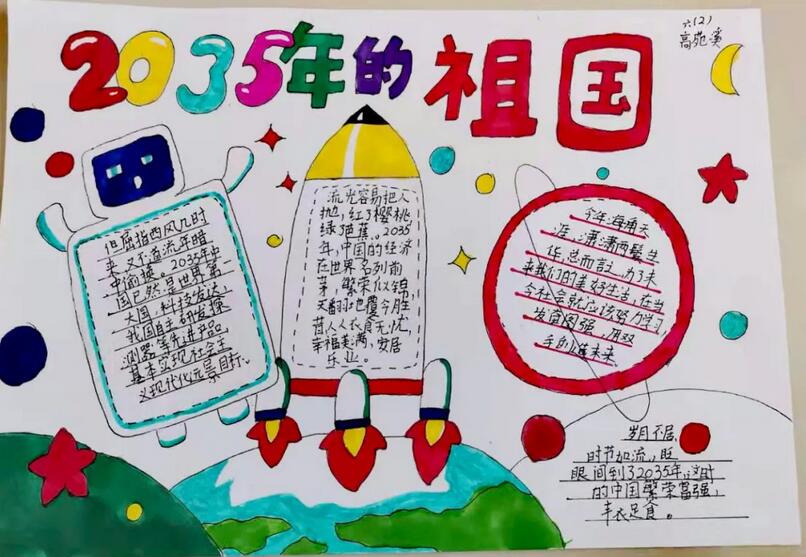 2035年的祖国
六(2)
高苑溪
但屈指西风几时
来,又不道流年暗
中偷换。2035年中
国已然是世界第一
大国,科技发达,
我国自主研发探
测器等先进产品,
基本实现社会主
义现代化远景目标。
流光容易把人
抛,红了樱桃,
绿了芭蕉。2035
年,中国的经济
在世界名列前
茅,繁荣似锦,
天翻地覆今胜
昔人人衣食无忧,
幸福美满,安居
乐业。
今年海角天
涯,潇潇两鬓生
华,总而言之,为了未
来我们的美好生活,在当
今社会就应该努力学习,
发奋图强,用双
手创造未来
岁月不居,
时节如流,眨
眼间到了2035年,这时
的中国繁荣富强,
丰衣足食。